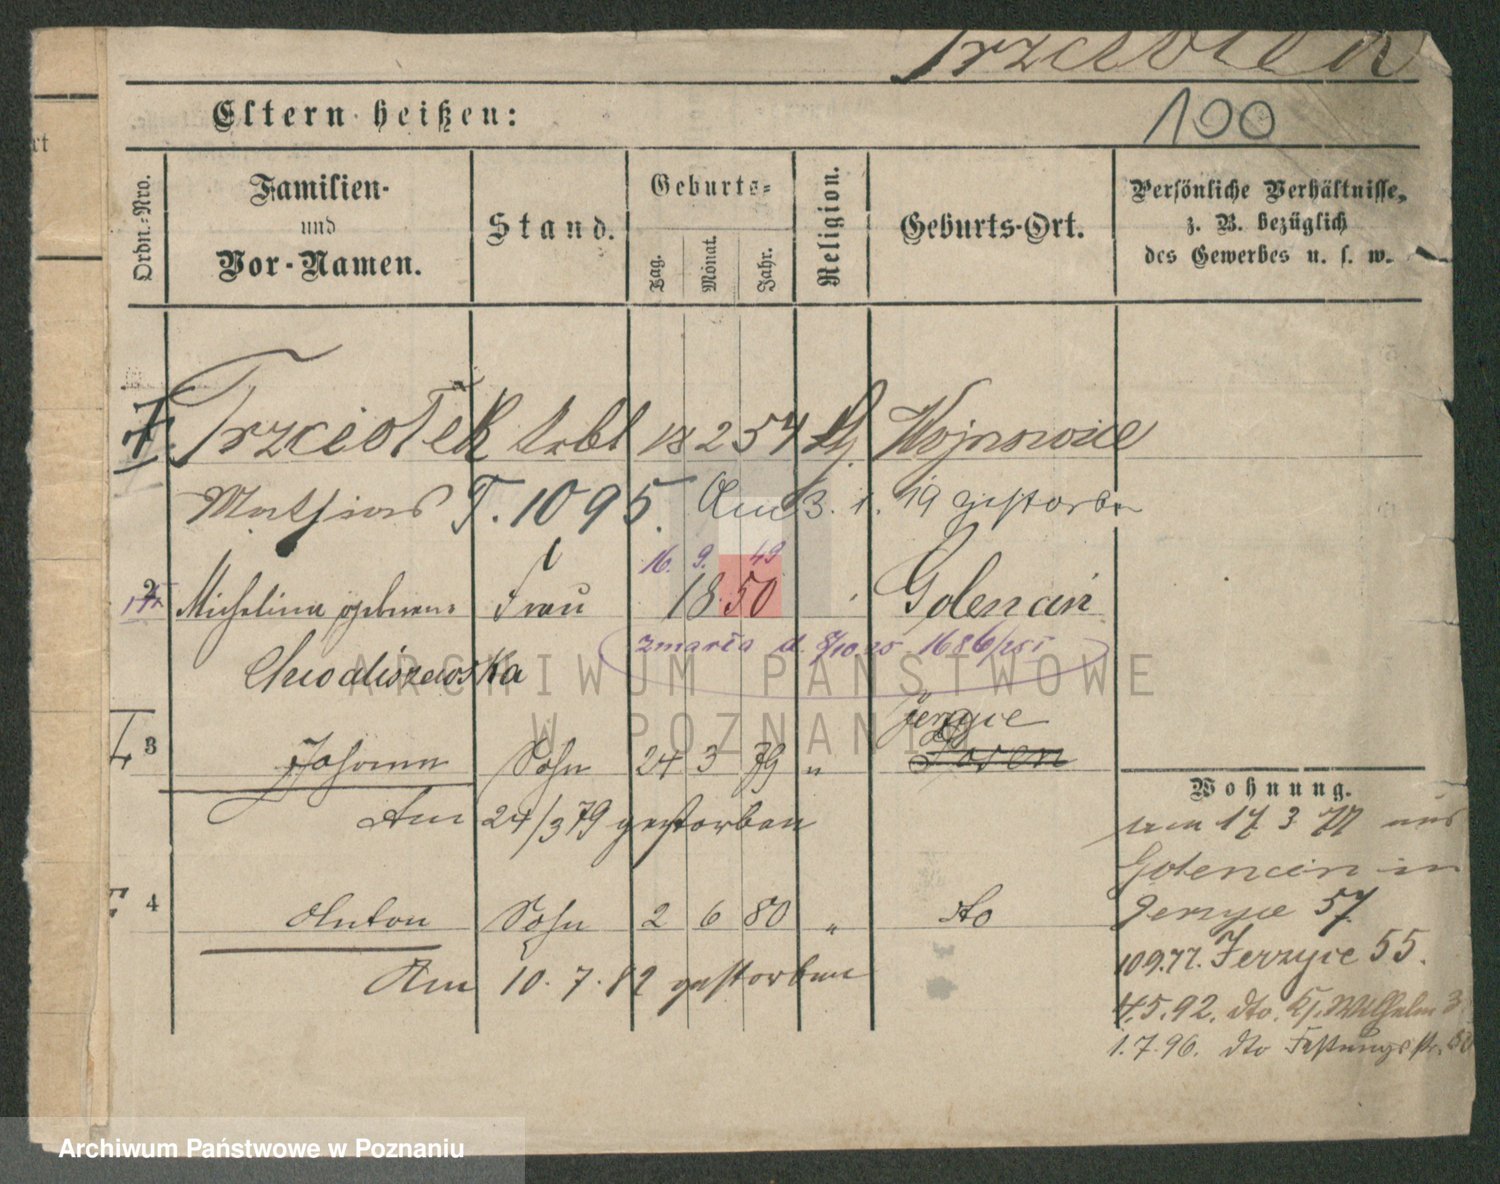 Trzciotek
Eltern heißen:
100
Ordn.-Nro.
Familien-
und
Vor-Namen.
Stand.
Geburts-
Tag.
Monat.
Jahr.
Religion.
Geburts-Ort.
Persönliche Verhältnisse,
z. B. bezüglich
des Gewerbes u. s. w.
1 Trzciotek Arbt 18 2 54 Kt. Wojnowice
Mathias T. 1095. Am 3. 1. 19 gestorben
16. 9. 49
2 Michelina geborene Frau 18 50 Golencin
zmarła d. 8/10.25 1686/25I
Chwodiszewska
Jerzyce
3 Johann Sohn 24 3 79 " Posen
Am 24/3 79 gestorben
4 Anton Sohn 2 6 80 " dto
Am 10. 7. 82 gestorben
Wohnung.
17 3 77 aus
Golencin in
Jerzyce 57
10 9.77. Jerzyce 55.
4.5.92. dto. K. Wilhelm 3
1.7.96. dto Festungsstr.
ARCHIWUM PAŃSTWOWE
W POZNANIU
Archiwum Państwowe w Poznaniu